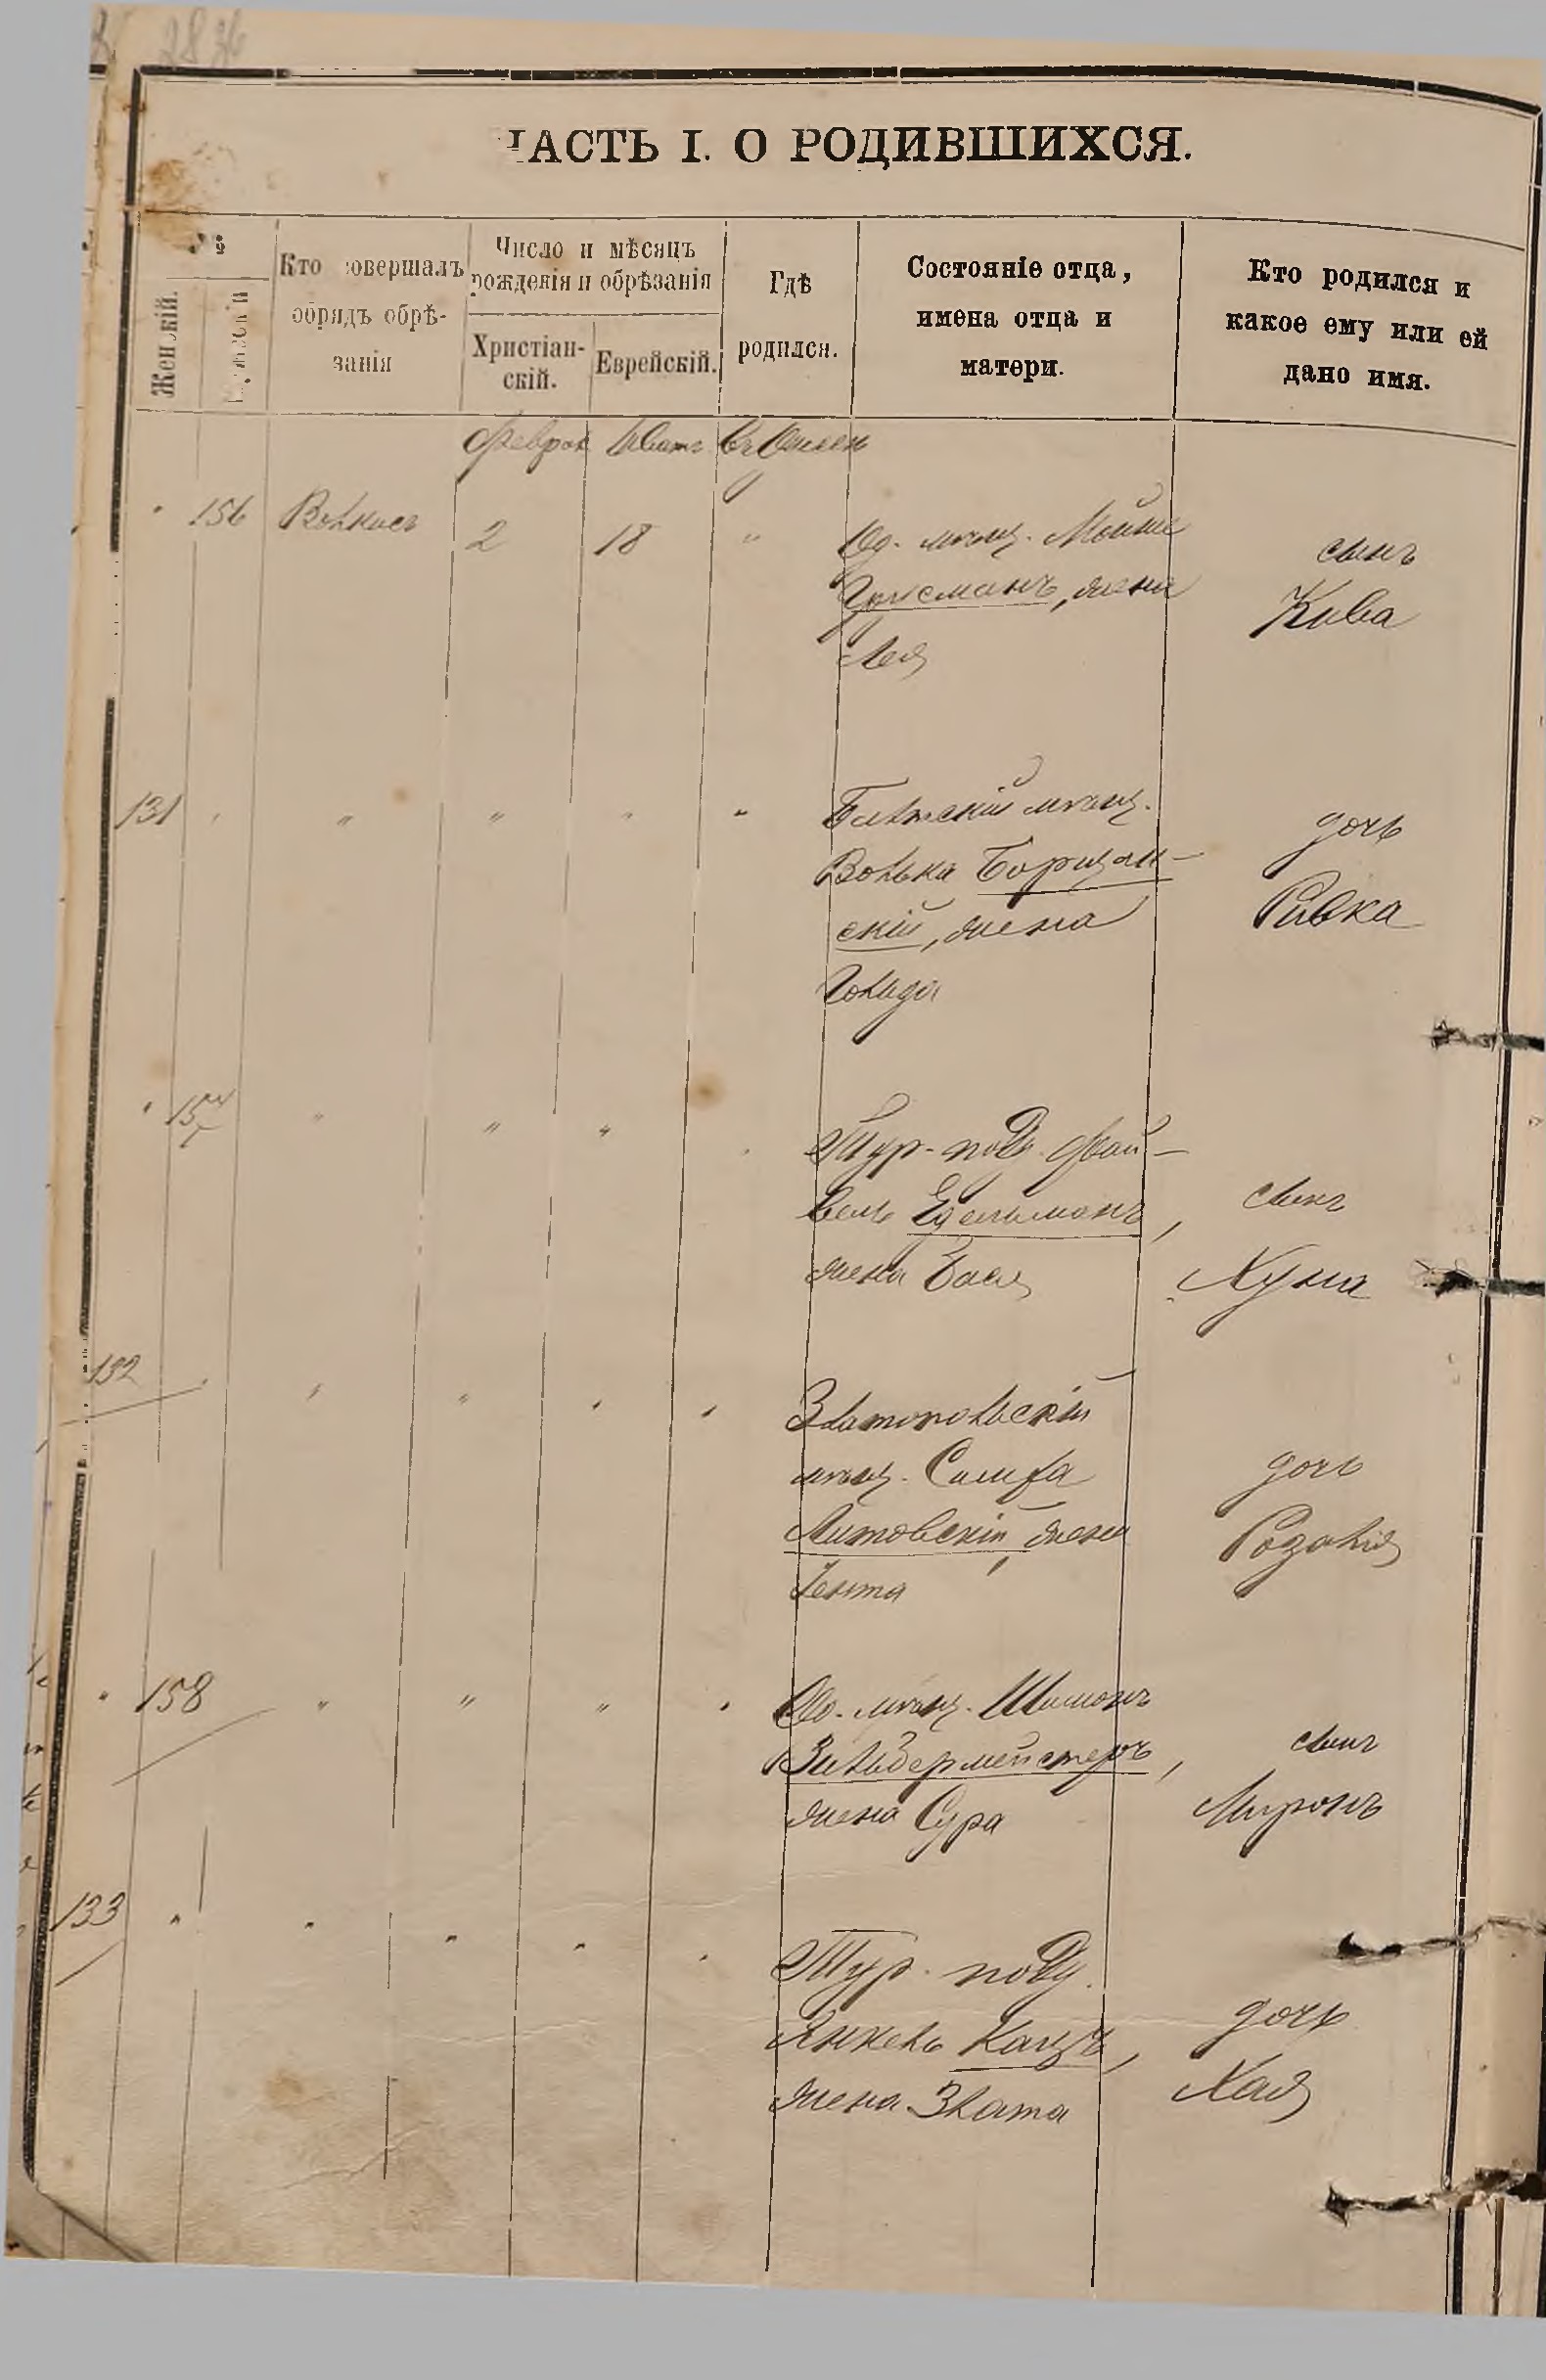 2836
ЧАСТЬ I. О РОДИВШИХСЯ.
№
Женскій.
Мужескій
Кто совершалъ
обрядъ обрѣ-
занія
Число и мѣсяцъ
рожденія и обрѣзанія
Христіан-
скій.
Еврейскій.
Гдѣ
родился.
Состояніе отца,
имена отца и
матери.
Кто родился и
какое ему или ей
дано имя.
Феврал Шватъ
156 2 18 " Од. мѣщ. Мойше
жена
Лея
сынъ
Кива
131 " " " " "
мѣщ.
Волька Борщан-
скій, жена
Гольда
дочь
Ривка
157 " " "
Тур. под. Фай-
вель Едельманъ,
жена Бася
сынъ
Хуна
132 " " " "
Златопольскій
мѣщ. Симха
Литовскій, жена
Iента
дочь
Розалія
158 " " " "
Од. мѣщ. Шимонъ
Зильбермейстеръ,
жена Сура
сынъ
Миронъ
133 " " " " "
Тур. подд.
Янкель Кацъ,
жена Злата
дочь
Хая